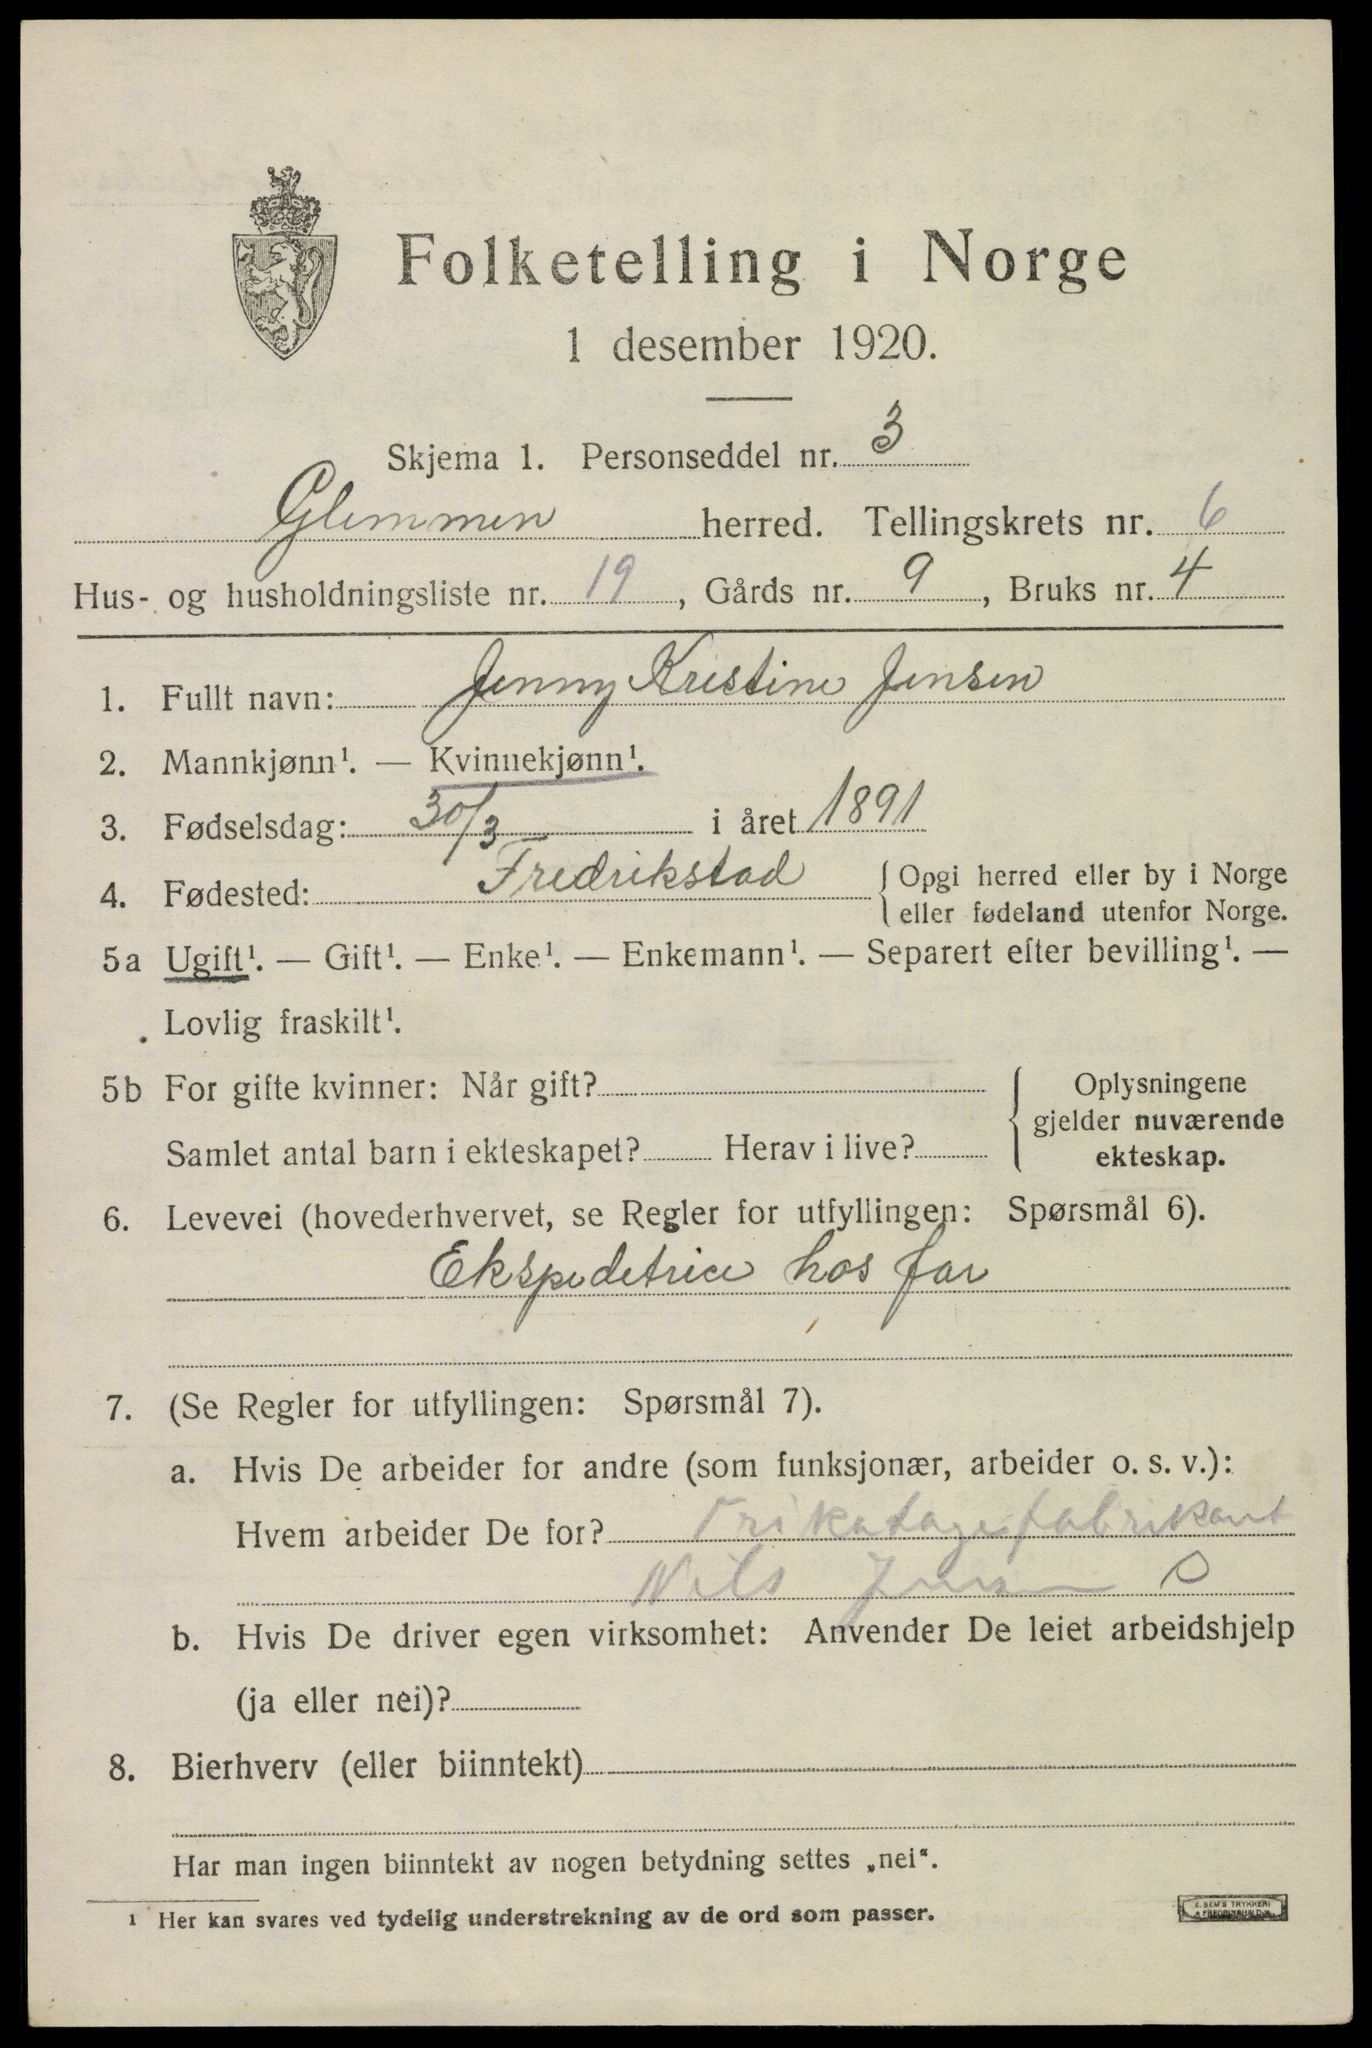 Folketelling i Norge
1 desember 1920.
Skjema 1. Personseddel nr. 3
Glemmen herred. Tellingskrets nr. 6
Hus- og husholdningsliste nr. 19, Gårds nr. 9, Bruks nr. 4
1. Fullt navn: Jenny Kristine Jensen
2. Mannkjønn¹. — Kvinnekjønn¹.
3. Fødselsdag: 30/3 i året 1891
4. Fødested: Fredrikstad { Opgi herred eller by i Norge
eller fødeland utenfor Norge.
5a Ugift¹. — Gift¹. — Enke¹. — Enkemann¹. — Separert efter bevilling¹. —
Lovlig fraskilt¹.
5b For gifte kvinner: Når gift?
Samlet antal barn i ekteskapet? Herav i live?
Oplysningene
gjelder nuværende
ekteskap.
6. Levevei (hovederhvervet, se Regler for utfyllingen: Spørsmål 6).
Ekspeditrice hos far
7. (Se Regler for utfyllingen: Spørsmål 7).
a. Hvis De arbeider for andre (som funksjonær, arbeider o. s. v.):
Hvem arbeider De for? Trikotagefabrikant
Nils Jensen
b. Hvis De driver egen virksomhet: Anvender De leiet arbeidshjelp
(ja eller nei)?
8. Bierhverv (eller biinntekt)
Har man ingen biinntekt av nogen betydning settes „nei“.
¹ Her kan svares ved tydelig understrekning av de ord som passer.
E. SEM'S TRYKKERI
FREDRIKSHALD